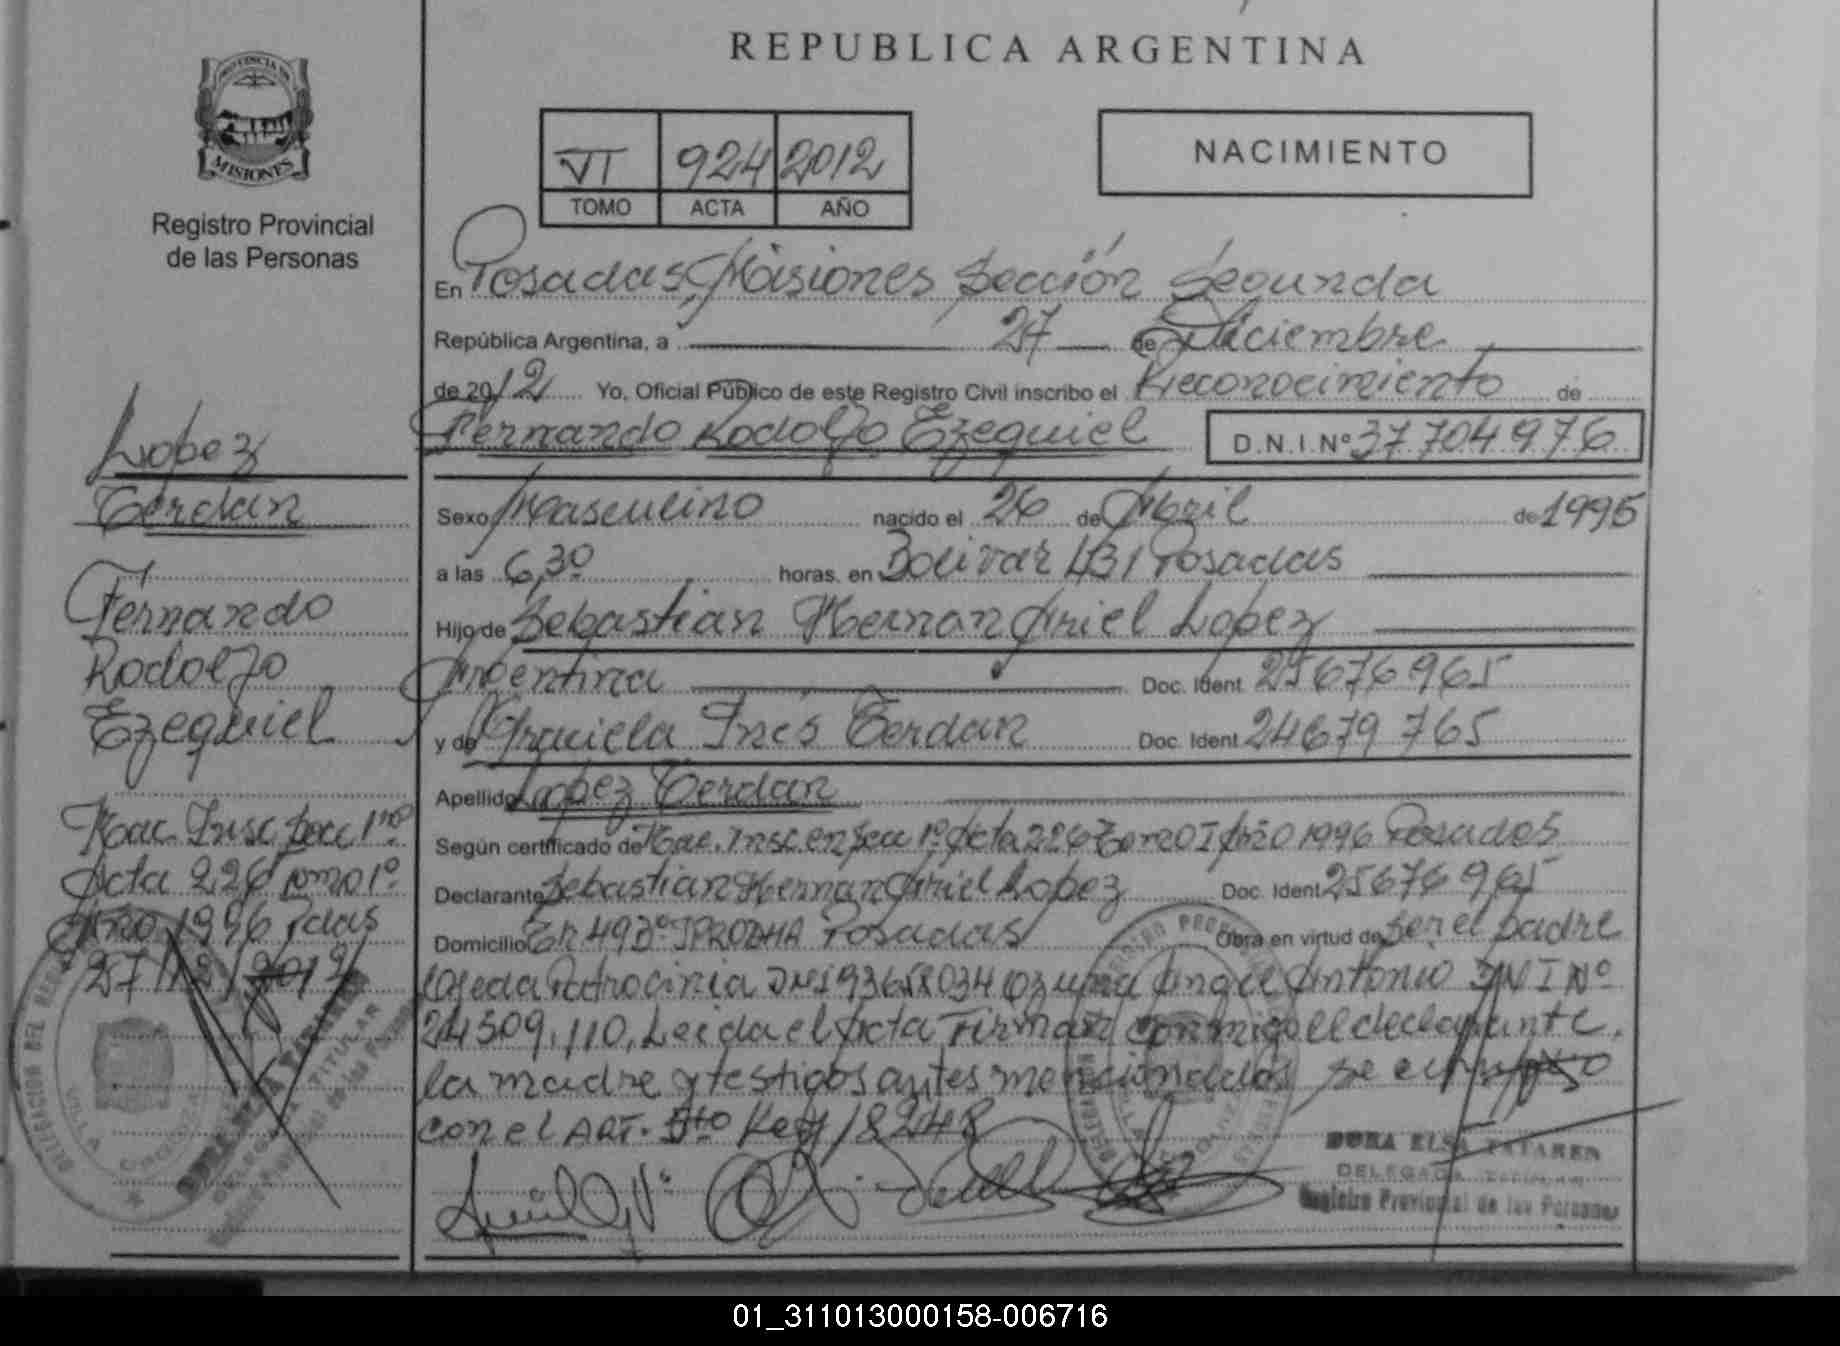 REPUBLICA ARGENTINA
PROVINCIA DE
MISIONES
Registro Provincial
de las Personas
VI 924 2012
TOMO ACTA AÑO
NACIMIENTO
En Posadas, Misiones Sección Segunda
República Argentina, a 27 de Diciembre
de 2012 Yo, Oficial Público de este Registro Civil inscribo el Reconocimiento de
Fernando Rodolfo Ezequiel D.N.I.Nº 37704976
Sexo Masculino nacido el 26 de Abril de 1995
a las 6,30 horas. en Bolivar 431 Posadas
Hijo de Sebastian Hernan Ariel Lopez
Argentina Doc. Ident. 25676965
y de Graciela Inés Cerdan Doc. Ident. 24679765
Apellido Lopez Cerdan
Según certificado de Nac. Insc. en Secc 1º Acta 226 Tomo I Año 1996 Posadas
Declarante Sebastian Hernan Ariel Lopez Doc. Ident. 25676965
Domicilio Posadas Obra en virtud de Ser el padre
Ojeda Patrocinia DNI 93658034 Ozuna Angel Antonio DNI Nº
24309.110. Leida el Acta Firman conmigo el declarante,
la madre y testigos antes mencionados se cumplio
con el ART. 5to Ley 18248
Lopez
Cerdan
Fernando
Rodolfo
Ezequiel
Nac. Insc Secc 1ra
Acta 226 Tomo 1º
Año 1996 Pdas
27/12/2012
DORA ELSA TATAREN
DELEGADA TITULAR
Registro Provincial de las Personas
01_311013000158-006716